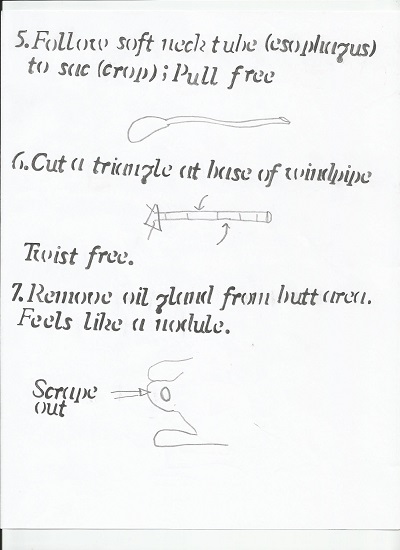 5. Follow soft neck tube (esophagus)
to sac (crop); Pull free
6. Cut a triangle at base of windpipe
Twist free.
7. Remove oil gland from butt area.
Feels like a nodule.
Scrape
out